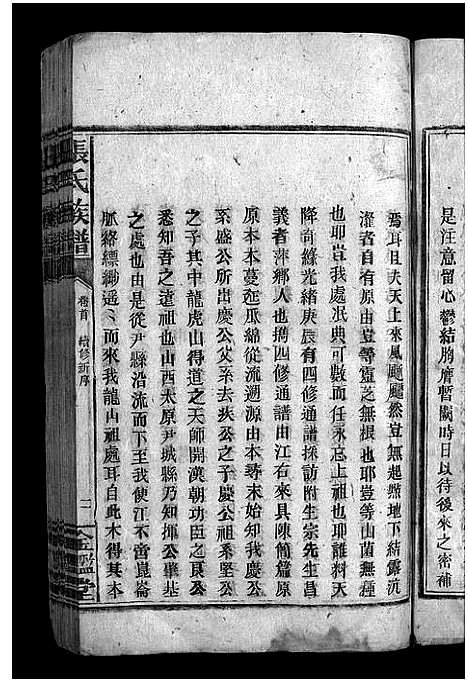 是注意留心鬱結胸膺暫閣時日以待後來之密補
焉耳且夫天上來風颺颺然豈無起點地下結露沆
瀣者自有原由豈等靈芝無根也耶豈等山菌無種
也耶豈我處泯典可數而任永忘上祖也耶誰料天
降奇緣光緒庚辰有四修通譜採訪附生宗先生昌
義者萍鄉人也携四修通譜由江右來具陳簡篇原
原本本蔓延瓜綿從流遡源由本尋末始知我慶公
系盛公所出慶公父系去疾公之子慶公祖系堅公
之子其中龍虎山得道之天師開漢朝功臣之良公
悉知吾之遠祖也山西太原尹城縣乃知揮公肇基
之處也由是從尹縣沿流而下至我使江不啻崑崙
脈絡縹緲遥遥而來我龍內祖處耳自此木得其本
張氏族譜
卷首
續修新序
二
金鑑堂